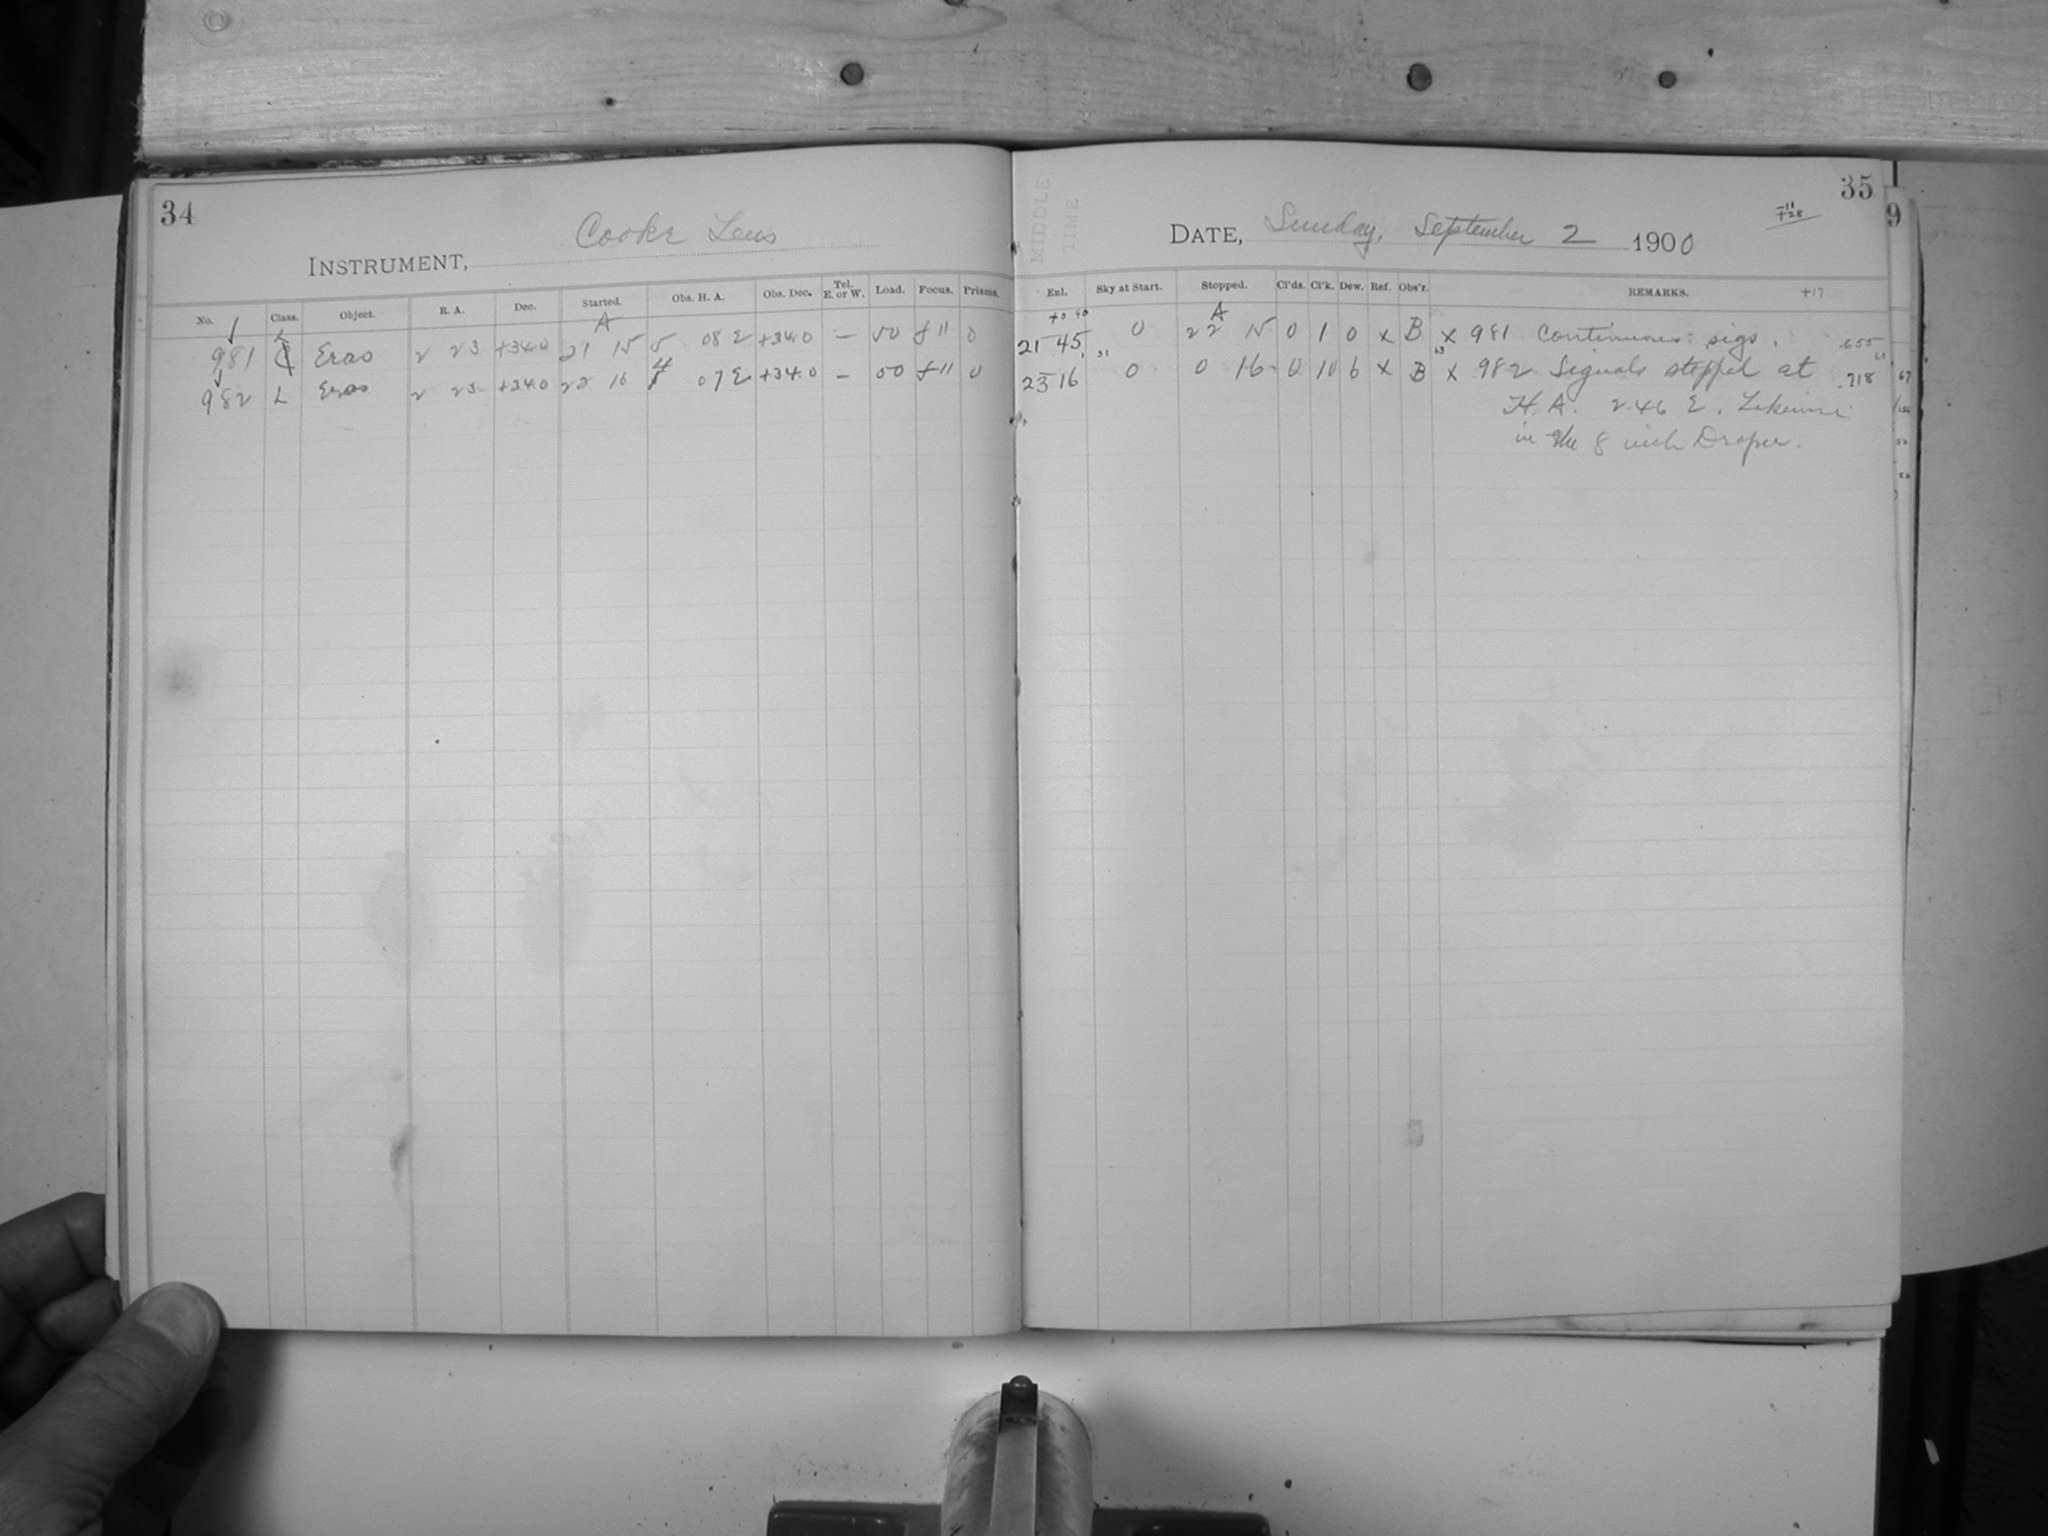 34
INSTRUMENT, Cooke Lens
No. Class. Object. R. A. Dec. Started. Obs. H. A. Obs. Dec. Tel. E. or W. Load. Focus. Prisms.
A
L
981 Eros 2 23 +34.0 21 15 5 08 E +34.0 — 50 f 11 0
982 L Eros 2 23 +34.0 22 16 4 07 E +34.0 — 50 f 11 0
35
MIDDLE TIME
-11
+28
DATE, Sunday, September 2 1900
Enl. Sky at Start. Stopped. Cl'ds. Cl'k. Dew. Ref. Obs'r. REMARKS. +17
+0 40 A
21 45 0 22 15 0 1 0 x B x 981 Continuous sigs. .655
23 16 0 0 16 0 10 6 x B x 982 Signals stopped at .718
H. A. 2.46 E. Likewise
in the 8 inch Draper.
9
67
52
52